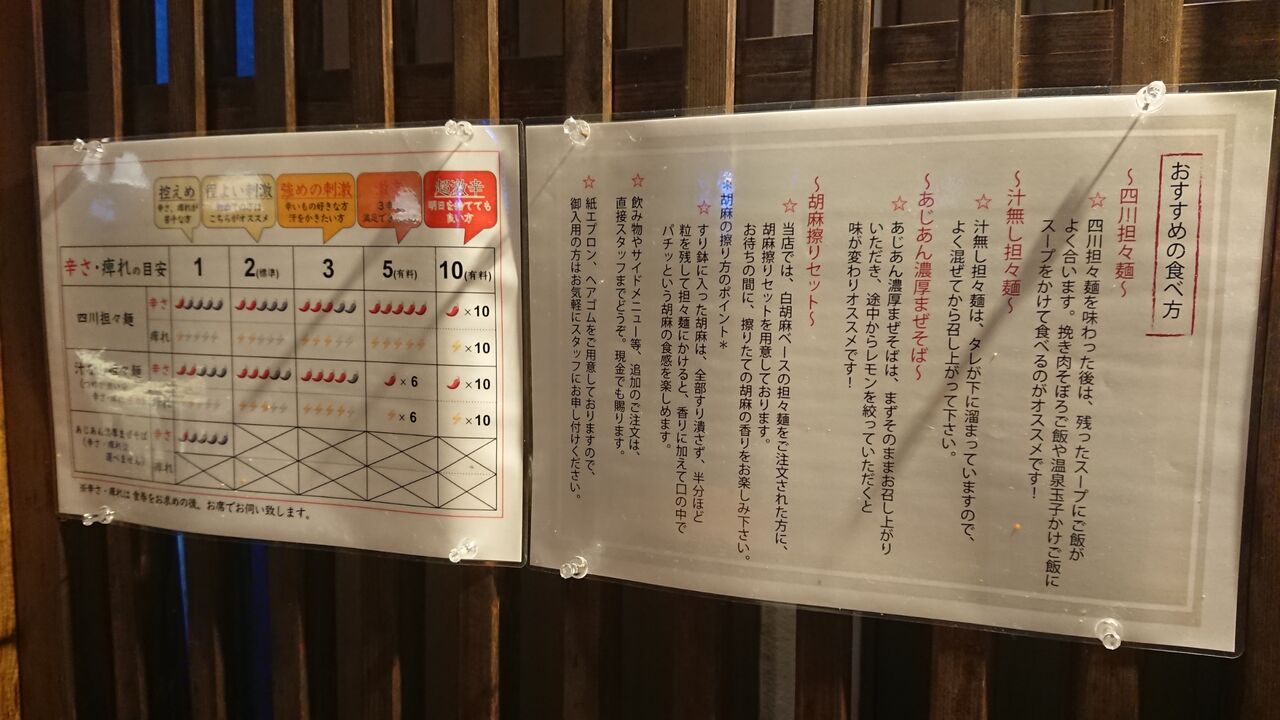 控えめ
辛さ、痺れが
苦手な方
程よい刺激
こちらがオススメ
強めの刺激
辛いもの好きな方
汗をかきたい方
超激辛
明日を捨ててても
良い方
辛さ・痺れの目安
1
2(標準)
3
5(有料)
10(有料)
四川担々麺
辛さ
×10
痺れ
×10
担々麺
辛さ
×6
×10
痺れ
×6
×10
あじあん濃厚まぜそば
(辛さ・痺れは
選べません)
辛さ
痺れ
※辛さ・痺れは食券をお求めの後、お席でお伺い致します。
おすすめの食べ方
～四川担々麺～
☆四川担々麺を味わった後は、残ったスープにご飯が
よく合います。挽き肉そぼろご飯や温泉玉子かけご飯に
スープをかけて食べるのがオススメです！
～汁無し担々麺～
☆汁無し担々麺は、タレが下に溜まっていますので、
よく混ぜてから召し上がって下さい。
～あじあん濃厚まぜそば～
☆あじあん濃厚まぜそばは、まずそのままお召し上がり
いただき、途中からレモンを絞っていただくと
味が変わりオススメです！
～胡麻擦りセット～
☆当店では、白胡麻ベースの担々麺をご注文された方に、
胡麻擦りセットを用意しております。
お待ちの間に、擦りたての胡麻の香りをお楽しみ下さい。
＊胡麻の擦り方のポイント＊
☆すり鉢に入った胡麻は、全部すり潰さず、半分ほど
粒を残して担々麺にかけると、香りに加えて口の中で
パチッという胡麻の食感を楽しめます。
☆飲み物やサイドメニュー等、追加のご注文は、
直接スタッフまでどうぞ。現金でも賜ります。
☆紙エプロン、ヘアゴムをご用意しておりますので、
御入用の方はお気軽にスタッフにお申し付けください。